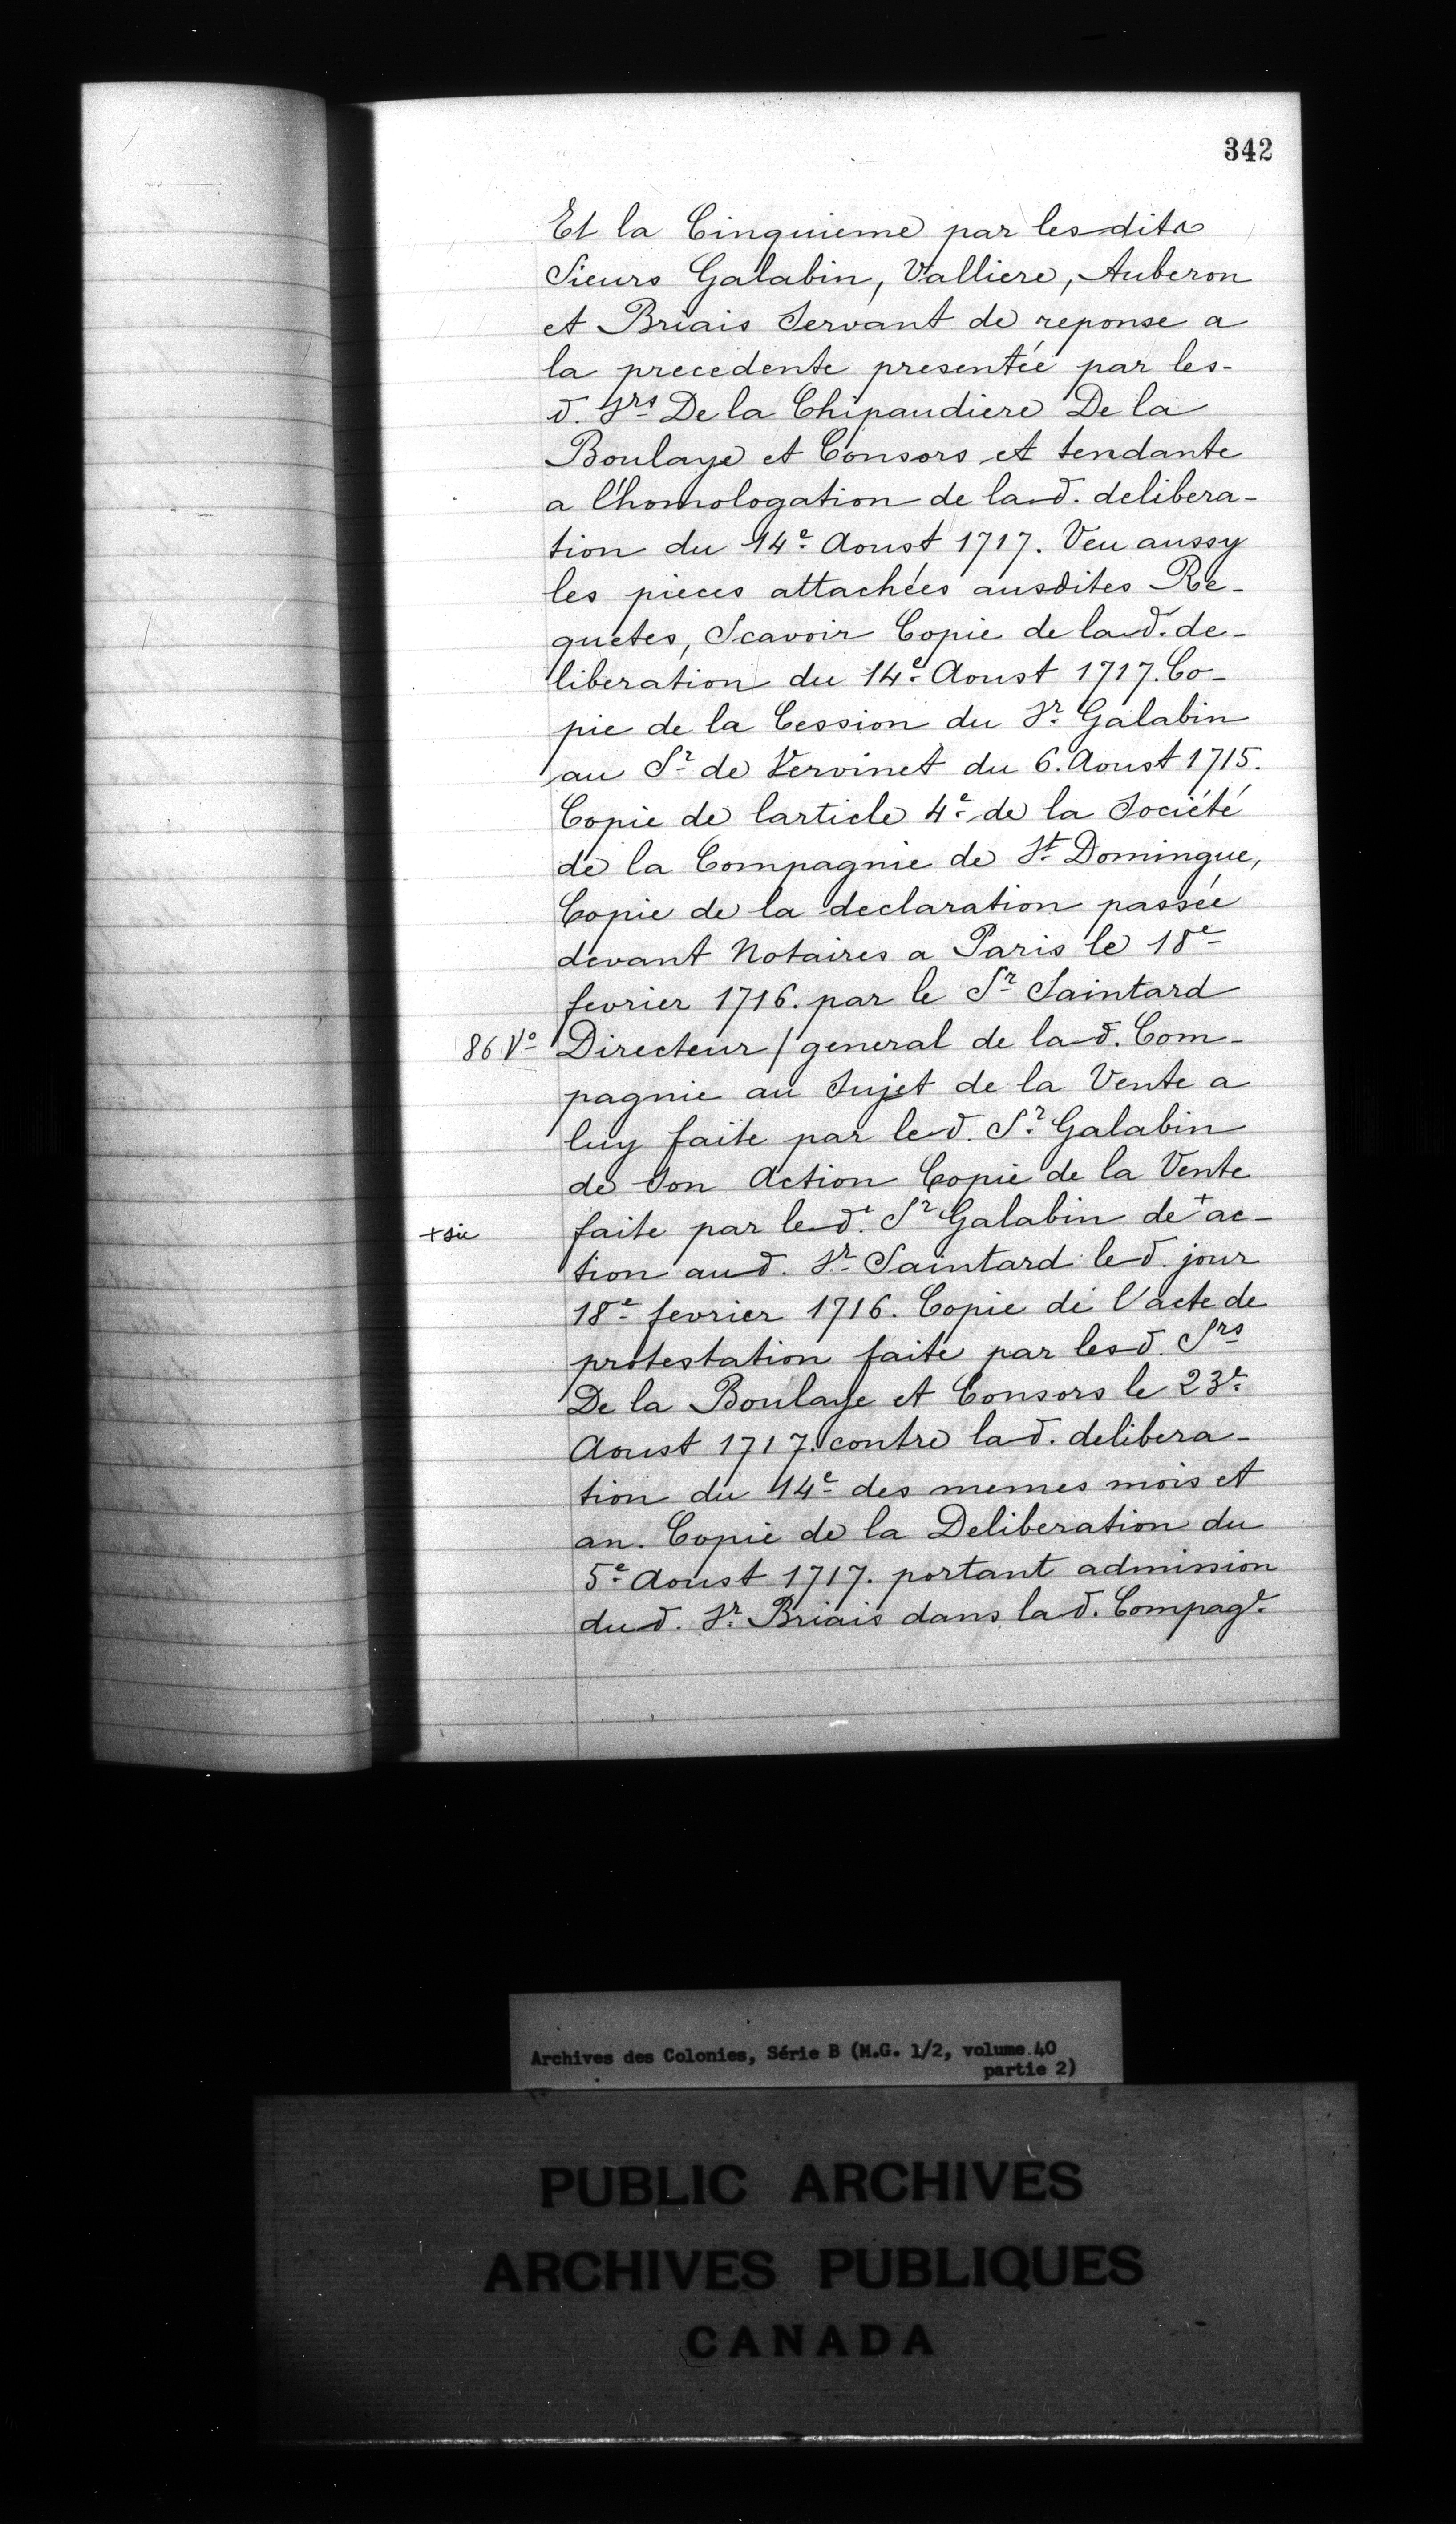 342
Et la Cinquieme par les dits
Sieurs Galabin, Valliere, Auberon
et Briais Servant de reponse a
la precedente presentée par les-
d. Srs De la Chipaudiere De la
Boulaye et Consors et tendante
a l'homologation de la d. delibera-
tion du 14e Aoust 1717. Veu aussy
les pieces attachées ausdites Re-
quetes, Scavoir Copie de la d. de-
liberation du 14e Aoust 1717. Co-
pie de la Cession du Sr Galabin
au Sr de Vervinet du 6. Aoust 1715.
Copie de larticle 4e de la Société
de la Compagnie de St Domingue,
Copie de la declaration passée
devant Notaires a Paris le 18e
fevrier 1716. par le Sr Saintard
86 Vo Directeur / general de la d. Com-
pagnie au Sujet de la Vente a
luy faite par le d. Sr Galabin
de Son Action Copie de la Vente
+sic faite par le d. Sr Galabin de + ac-
tion au d. Sr Saintard le d. jour
18e fevrier 1716. Copie de l'acte de
protestation faite par les d. Srs
De la Boulaye et Consors le 23e
Aoust 1717. contre la d. delibera-
tion du 14e des memes mois et
an. Copie de la Deliberation du
5e Aoust 1717. portant admission
du d. Sr Briais dans la d. Compage.
Archives des Colonies, Série B (M.G. 1/2, volume 40
partie 2)
PUBLIC ARCHIVES
ARCHIVES PUBLIQUES
CANADA